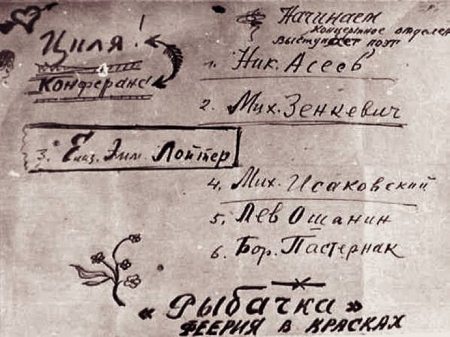 Циля!
Конферанс
Начинаем
Концертное отделен
Выступает поэт
1. Ник. Асеев
2. Мих. Зенкевич
3. Елиз. Эмм. Лойтер
4. Мих. Исаковский
5. Лев Ошанин
6. Бор. Пастернак
«Рыбачка»
ФЕЕРИЯ В КРАСКАХ